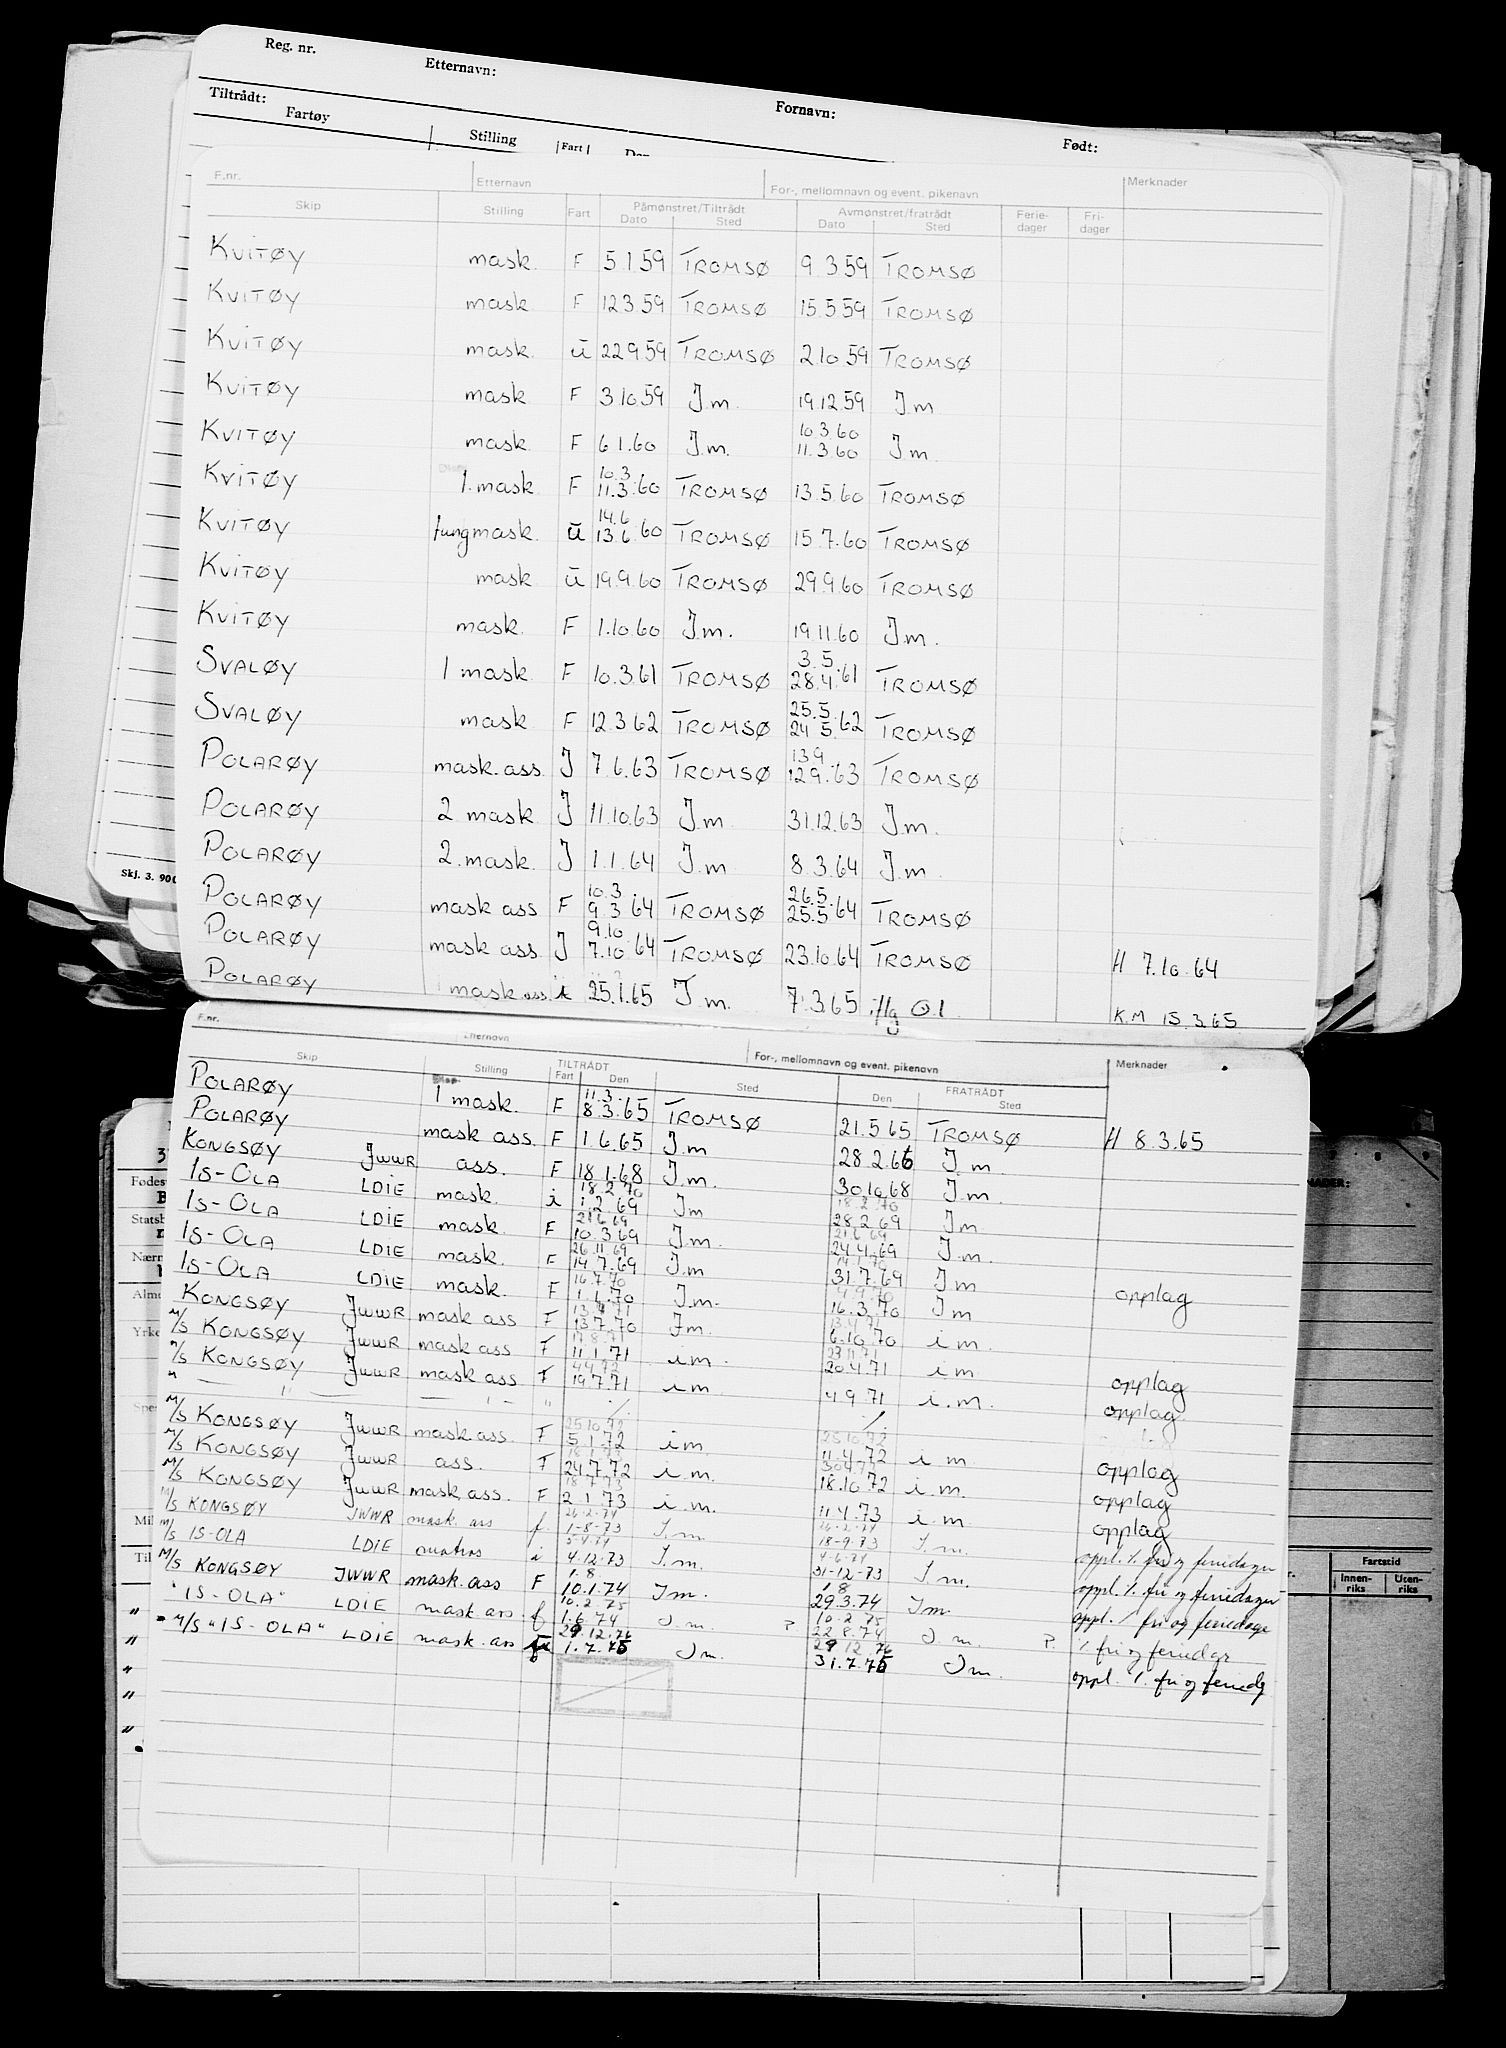 Reg. nr. Etternavn: Fornavn: Født:
Tiltrådt: Fartøy Stilling Fart
F.nr. Etternavn For-, mellomnavn og event. pikenavn Merknader
Skip Stilling Fart Påmønstret/Tiltrådt Avmønstret/fratrådt Ferie- Fri-
Dato Sted Dato Sted dager dager
KVITØY mask. F 5.1.59 TROMSØ 9.3.59 TROMSØ
KVITØY mask F 12.3.59 TROMSØ 15.5.59 TROMSØ
KVITØY mask. u 22.9.59 TROMSØ 2.10.59 TROMSØ
KVITØY mask F 3.10.59 J.m. 19.12.59 J.m
10.3.60
KVITØY mask F 6.1.60 J.m. 11.3.60 J.m.
10.3
KVITØY 1.mask F 11.3.60 TROMSØ 13.5.60 TROMSØ
14.6
KVITØY fungmask. u 13.6.60 TROMSØ 15.7.60 TROMSØ
KVITØY mask u 19.9.60 TROMSØ 29.9.60 TROMSØ
KVITØY mask. F 1.10.60 J.m. 19.11.60 J.m.
3.5.
SVALØY 1 mask F 10.3.61 TROMSØ 28.4.61 TROMSØ
25.5.
SVALØY mask F 12.3.62 TROMSØ 24.5.62 TROMSØ
13.9
POLARØY mask.ass. J 7.6.63 TROMSØ 12.9.63 TROMSØ
POLARØY 2 mask J 11.10.63 J.m 31.12.63 J.m.
POLARØY 2.mask. J 1.1.64 J.m 8.3.64 J.m.
10.3. 26.5.
POLARØY mask ass F 9.3.64 TROMSØ 25.5.64 TROMSØ
9.10
POLARØY mask ass. J 7.10.64 TROMSØ 23.10.64 TROMSØ H 7.10.64
POLARØY mask ass i 25.1.65 J.m. 7.3.65 K.M 15.3.65
Skj. 3.
F.nr. Etternavn For-, mellomnavn og event. pikenavn Merknader
Skip Stilling TILTRÅDT FRATRÅDT
Fart Den Sted Den Sted
11.3.
POLARØY 1 mask. F 8.3.65 TROMSØ 21.5.65 TROMSØ H 8.3.65
POLARØY mask ass. F 1.6.65 J.m 28.2.66 J.m.
KONGSØY JWWR ass. F 18.1.68 J.m. 30.10.68 J.m.
18.2.70 18.2.70
IS-OLA LDIE mask. i 1.2.69 Jm 28.2.69 Jm
21.6.69 21.6.69
IS-OLA LDIE mask. F 10.3.69 J.m. 24.4.69 J.m.
26.11.69
IS-OLA LDIE mask. F 14.7.69 J.m 31.7.69 Jm opplag
16.7.70
IS-OLA LDIE mask. F 1.1.70 J.m. 16.3.70 Jm
13.4.71 13.4.71
KONGSØY JWWR mask ass F 13.7.70 Jm. 6.10.70 i m.
17.8.71 23.11.71
M/S KONGSØY JWWR mask ass F 11.1.71 i m. 20.4.71 i m opplag
4.4.72
M/S KONGSØY JWWR mask ass F 19.7.71 i m. 4.9.71 i.m. opplag
" " " " ./. ./.
25.10.72 25.10.72
M/S KONGSØY JWWR mask ass. F 5.1.72 i m. 11.4.72 i m. opplag
M/S KONGSØY JWWR ass. F 24.7.72 i m. 18.10.72 i m. opplag
M/S KONGSØY JWWR mask.ass. F 2.1.73 i.m. 11.4.73 i m. opplag
26.2.74 26.2.74
M/S KONGSØY JWWR mask. ass f. 1-8-73 J.m. 18-9-73 J.m. oppl. %. fri og feriedager
5.4.74 4-6-74
M/S IS-OLA LDIE i 4.12.73 J.m. 31-12-73 J m. oppl. %. fri og feriedager
1.8 1.8
M/S KONGSØY JWWR mask.ass F 10.1.74 Jm 29.3.74 Jm. oppl. / fri og feriedage
10.2.75 10.2.75
"IS-OLA" LDIE mask.ass f 1.6.74 J.m. P. 22.8.74 J.m. P. % fri og feriedgr
29.12.76 29.12.76
M/S "IS-OLA" LDIE mask.ass 1.7.75 Jm. 31.7.75 Jm. oppl. %. fri og feriedg
Fødes
Statsb
Nærm
Alme
Yrke
Spe
Mil
Til
Fartstid
Innen- Uten-
riks riks